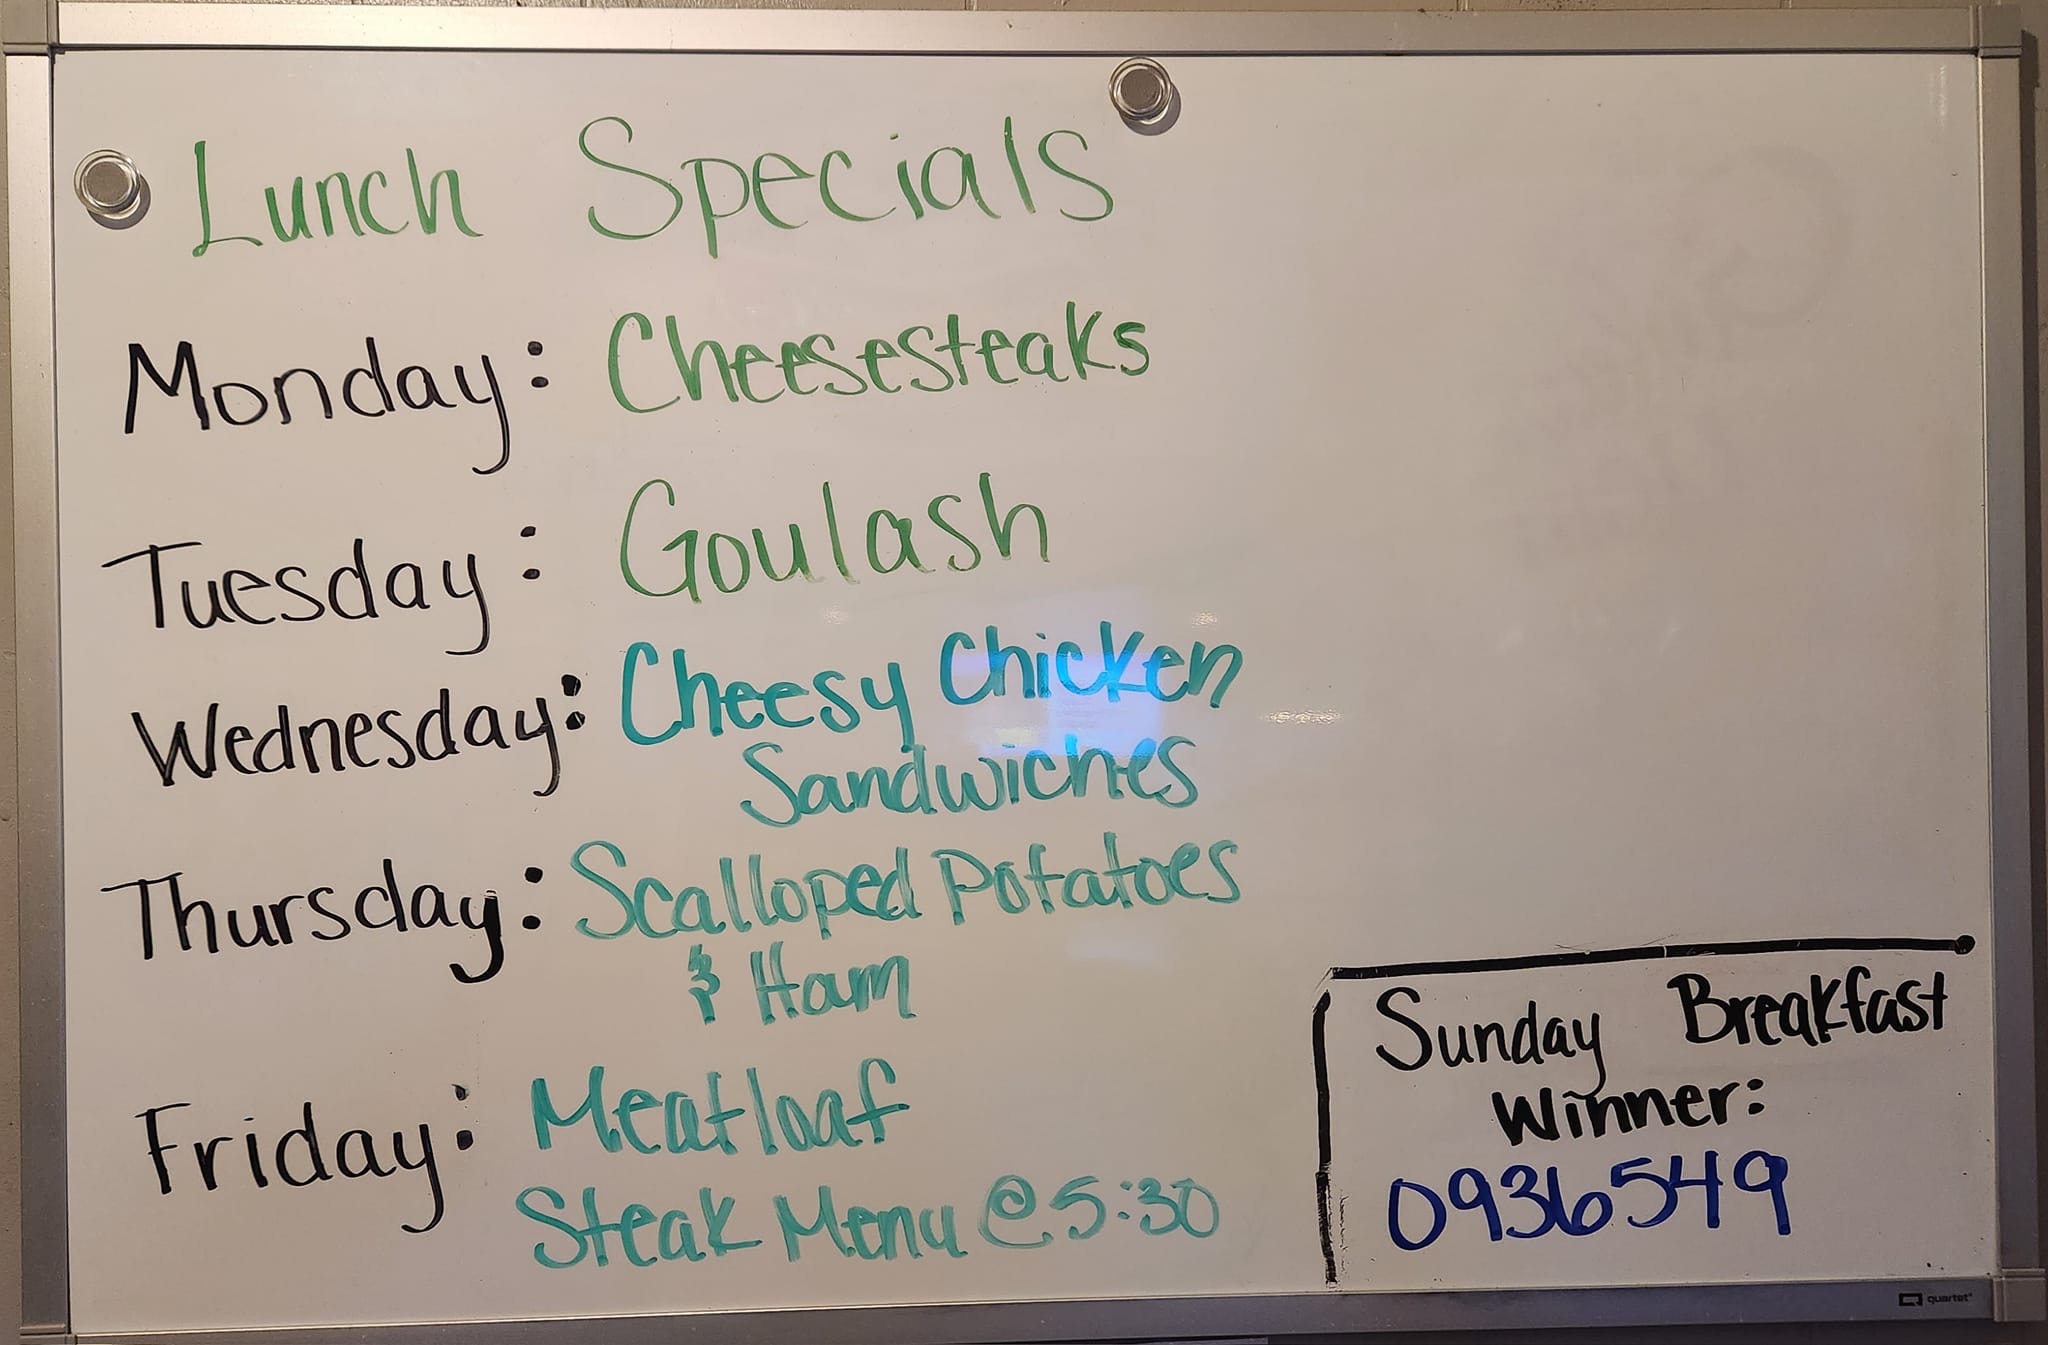 Lunch Specials
Monday: Cheesesteaks
Tuesday: Goulash
Wednesday: Cheesy Chicken
Sandwiches
Thursday: Scalloped Potatoes
& Ham
Friday: Meatloaf
Steak Menu @ 5:30
Sunday Breakfast
Winner:
0936549
quartet